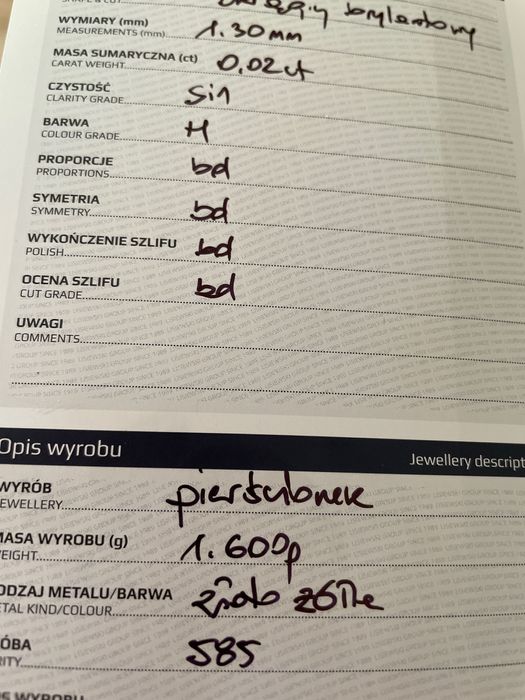 brylantowy
WYMIARY (mm)
MEASUREMENTS (mm) 1.30mm
MASA SUMARYCZNA (ct)
CARAT WEIGHT 0,02ct
CZYSTOŚĆ
CLARITY GRADE Si1
BARWA
COLOUR GRADE H
PROPORCJE
PROPORTIONS bd
SYMETRIA
SYMMETRY bd
WYKOŃCZENIE SZLIFU
POLISH bd
OCENA SZLIFU
CUT GRADE bd
UWAGI
COMMENTS
Opis wyrobu Jewellery descript
WYRÓB
JEWELLERY pierścionek
MASA WYROBU (g)
WEIGHT 1.600
RODZAJ METALU/BARWA
METAL KIND/COLOUR złoto żółte
ÓBA
RITY 585